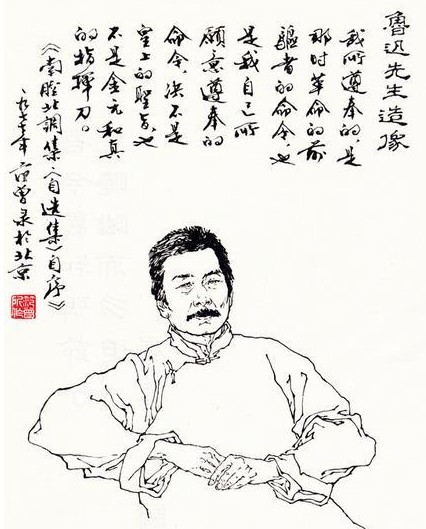 魯迅先生造像
我所遵奉的,是
那时革命的前
驅者的命令,也
是我自己所
願意遵奉的
命令,决不是
皇上的聖旨,也
不是金元和真
的指揮刀。
《南腔北調集《自选集》自序》
一九七七年 范曾录於北京